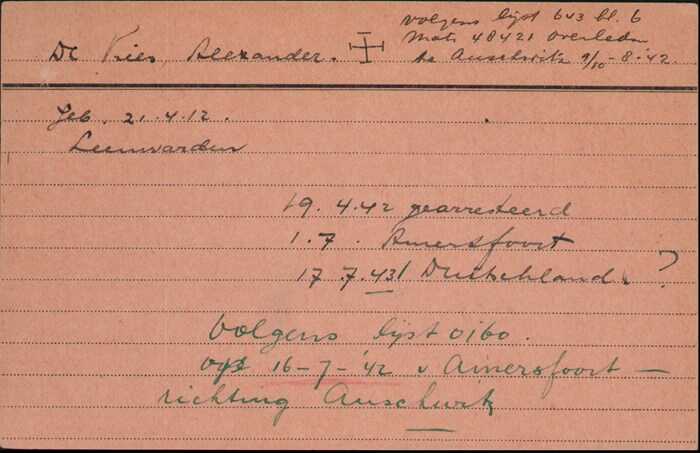 De Vries, Alexander.
volgens lijst 643 bl. 6
Matr 48421 overleden
te Auschwitz 9/10-8-'42
Geb. 21.4.12.
Leeuwarden
19.4.42 gearresteerd
1.7. Amersfoort
17.7.43 Duitschland. ?
Volgens lijst 0160.
16-7-'42 v Amersfoort —
richting Auschwitz